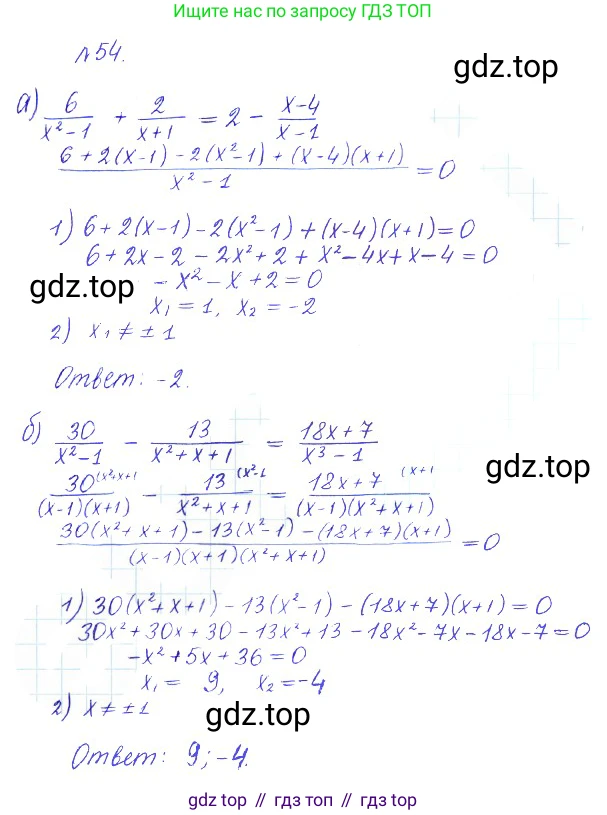 Ищите нас по запросу ГДЗ ТОП
№54.
gdz.top
а) 6/(x²-1) + 2/(x+1) = 2 - (x-4)/(x-1)
(6+2(x-1)-2(x²-1)+(x-4)(x+1))/(x²-1) = 0
1) 6+2(x-1)-2(x²-1)+(x-4)(x+1)=0
6+2x-2-2x²+2+x²-4x+x-4=0
gdz.top
-x²-x+2=0
x₁=1, x₂=-2
2) x₁≠±1
gdz.top
Ответ: -2.
б) 30/(x²-1) - 13/(x²+x+1) = (18x+7)/(x³-1)
gdz.top
30^(x²+x+1/((x-1)(x+1)) - 13^(x²-1/(x²+x+1) = (18x+7)^(x+1/((x-1)(x²+x+1))
(30(x²+x+1)-13(x²-1)-(18x+7)(x+1))/((x-1)(x+1)(x²+x+1)) = 0
1) 30(x²+x+1)-13(x²-1)-(18x+7)(x+1)=0
30x²+30x+30-13x²+13-18x²-7x-18x-7=0
-x²+5x+36=0
x₁= 9, x₂=-4
2) x≠±1
gdz.top
Ответ: 9;-4.
gdz top // гдз топ // gdz.top